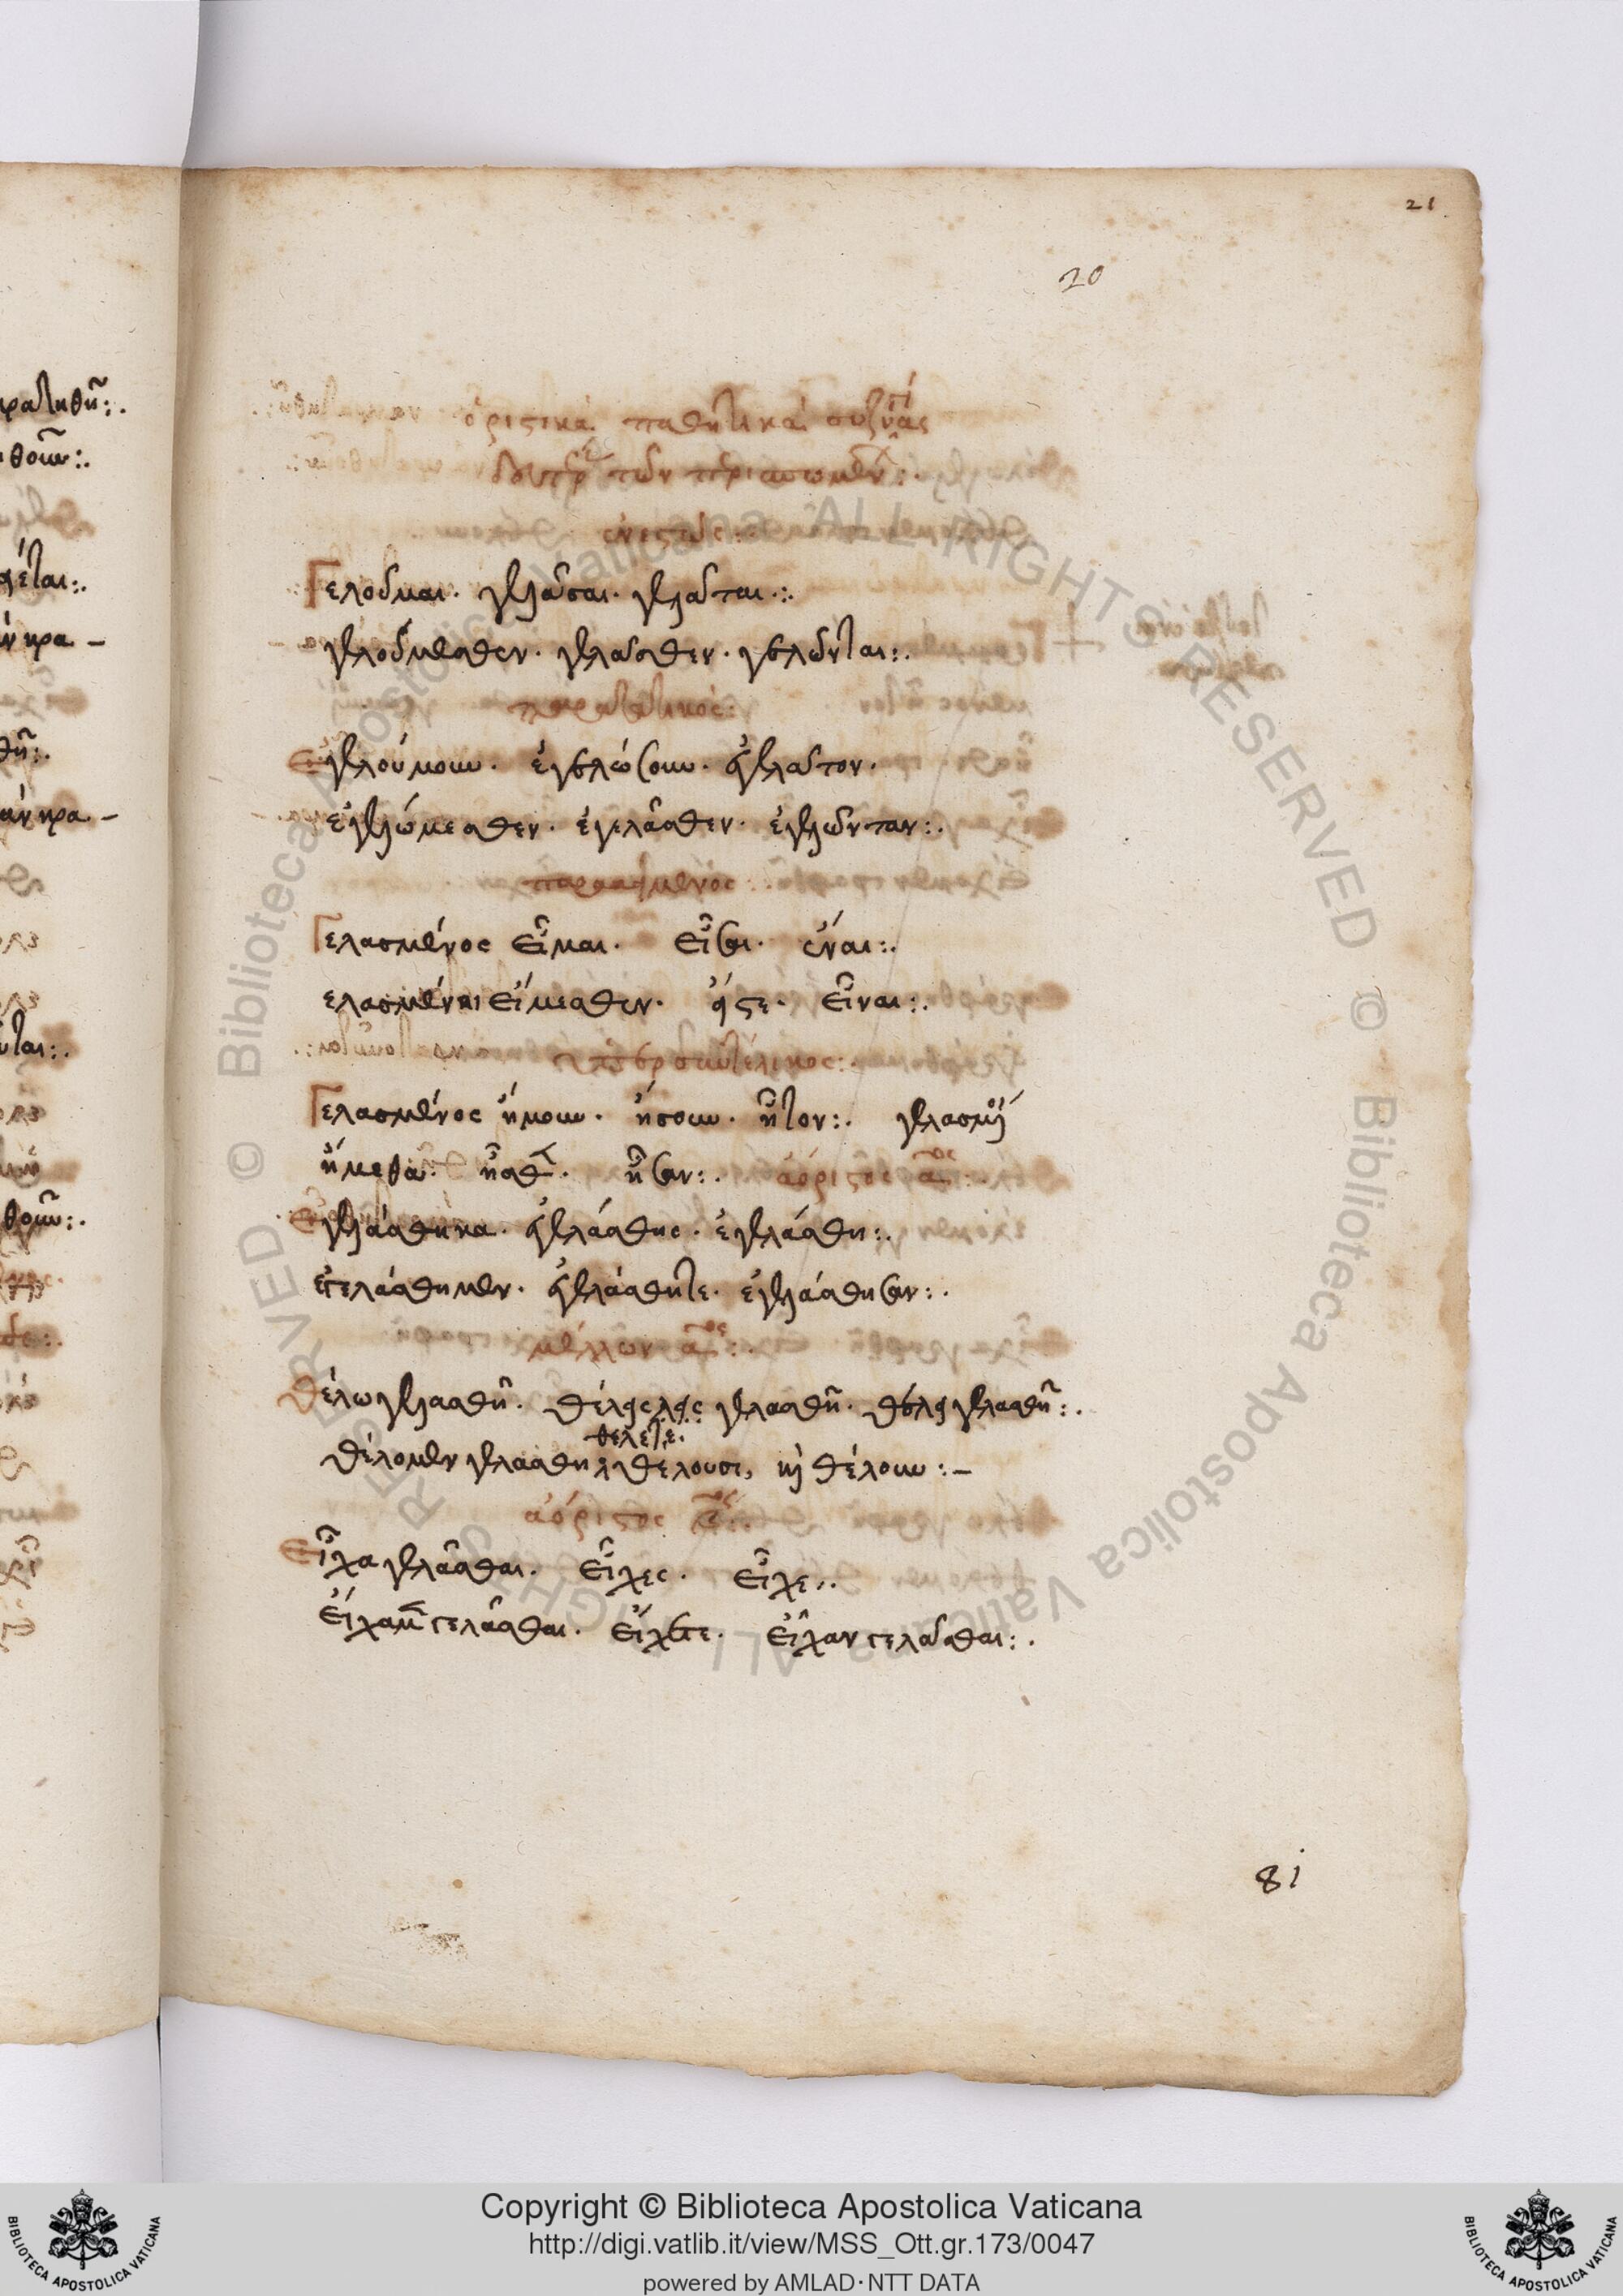 21
20
ὁριστικὰ παθητικὰ συζυγίας
δευτέρ τῶν περισπωμένων:.
ἐνεστώς:
Γελοῦμαι. γελᾶσαι. γελᾶται.:.
γελούμεσθεν. γελᾶσθεν. γελῶνται:.
παρατατικός:
Εγελούμουν. ἐγελώσουν. ἐγελᾶτον.
ἐγελώμεσθεν. ἐγελᾶσθεν. ἐγελῶνταν:.
παρακείμενος:.
Γελασμένος εἶμαι. εἶσαι. ἔναι:.
ελασμένοι εἴμεσθεν. ἤστε. εἶναι:.
ὑπερσυντέλικος:.
Γελασμένος ἤμουν. ἤσουν. ἦτον:. γελασμένοι
ἤμεθαν. ἦσθε. ἦσαν:. ἀόριστος αος:.
Εγελάσθηκα. ἐγελάσθης. ἐγελάσθη:.
ἐγελάσθημεν. ἐγελάσθητε. ἐγελάσθησαν:.
μέλλων αος:.
Θέλω γελασθῆ. θέλεις λεις γελασθῆ. θέλει γελασθῆ:.
θελετε.
θέλομεν γελασθῆ θέλουσι, κὶ θέλουν:—
ἀόριστος
Εἶχα γελᾶσθαι. εἶχες. εἶχε:.
εἴχαμεν γελᾶσθαι. εἴχετε. εἶχαν γελᾶσθαι:.
81
Copyright © Biblioteca Apostolica Vaticana
http://digi.vatlib.it/view/MSS_Ott.gr.173/0047
powered by AMLAD·NTT DATA
BIBLIOTECA APOSTOLICA VATICANA
BIBLIOTECA APOSTOLICA VATICANA